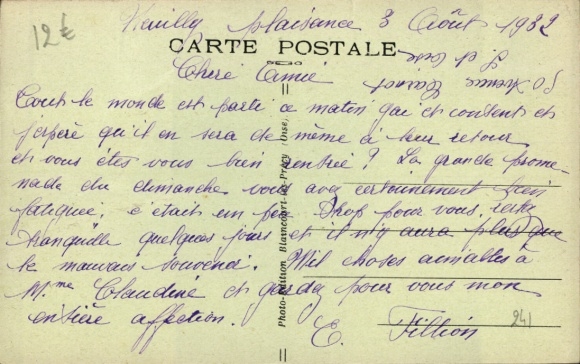 12€
Neuilly plaisance 3 Août 1932
CARTE POSTALE
Chère Amie
Tout le monde est parti ce matin gai et content et
j'espère qu'il en sera de même à leur retour
et vous êtes vous bien rentrée? La grande prome-
nade du dimanche vous avez certainement bien
fatiguée, c'était un peu trop pour vous, restez
tranquille quelques jours et il n'y aura plus que
le mauvais souvenir. Mil choses aimables à
Mme Claudine et gardez pour vous mon
entière affection.
E. Fillion
241
Photo-Edition Blaincourt-les-Précy (Oise)